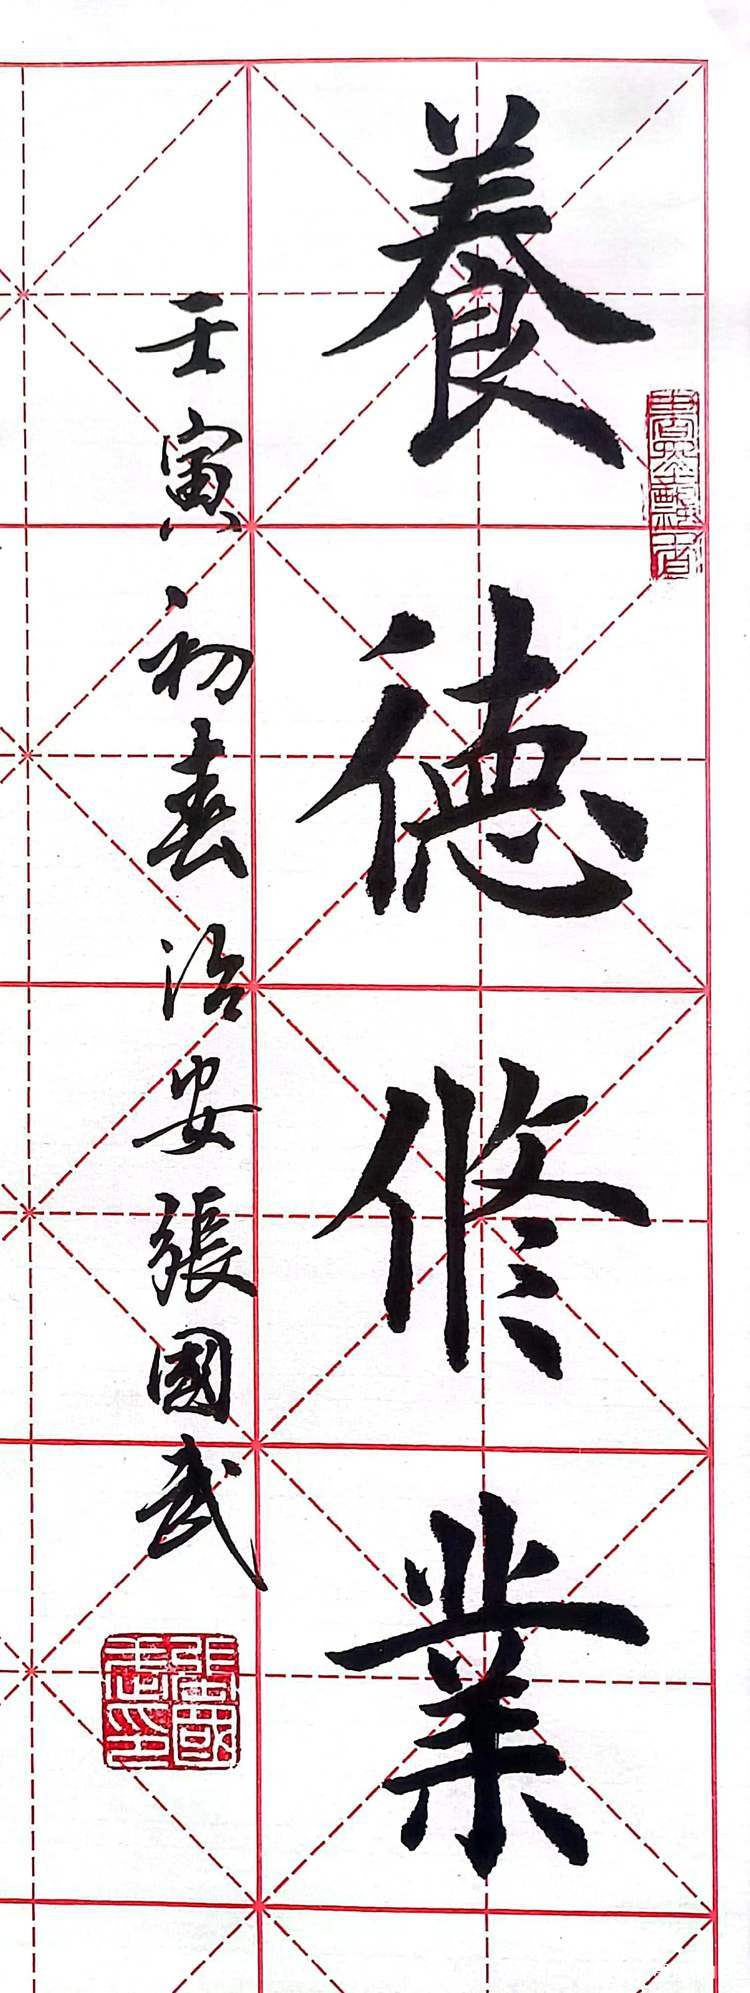 養德修業
壬寅初春治安張國武
張國武印